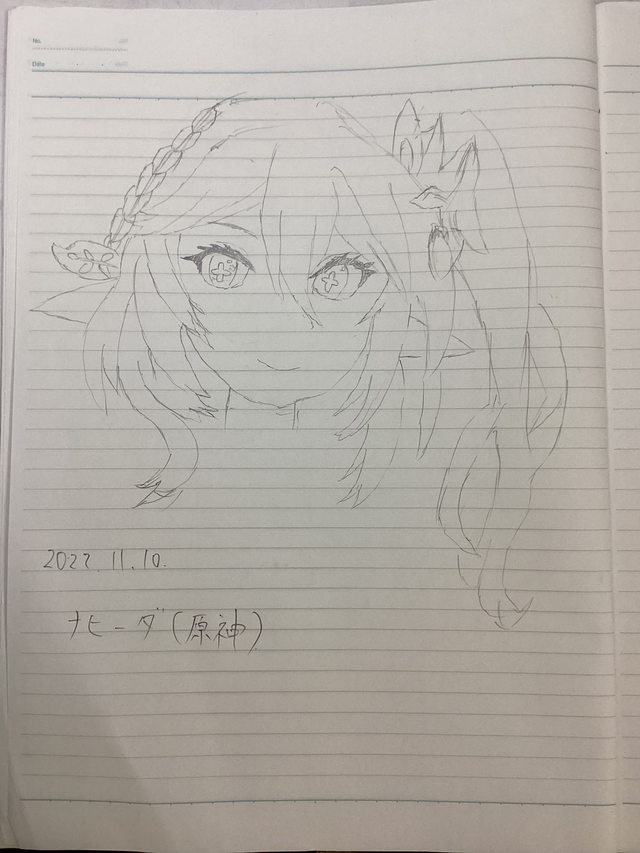 No.
Date
2022.11.10.
ナヒーダ(原神)